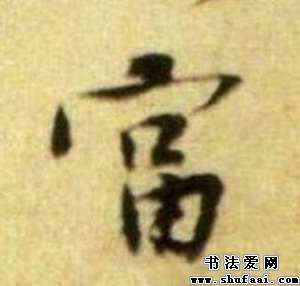 富
书法爱网
www.shufaai.com